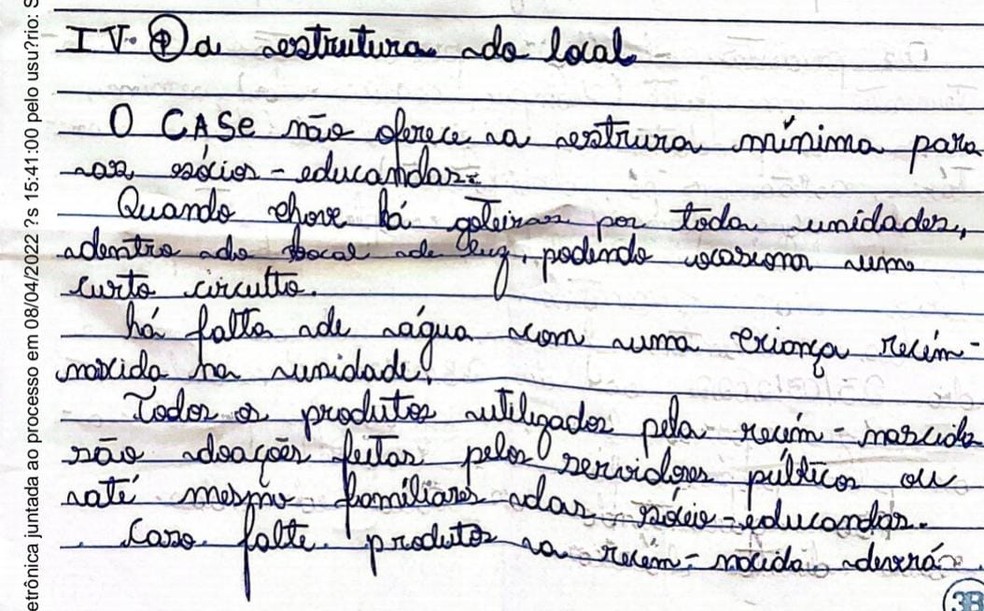 IV. a estrutura do local
O CASE não oferece a estrura mínima para
as sócios - educandas.
Quando chove há goteiras por toda unidades,
dentro do bocal de luz, podendo ocasionar um
curto circuito.
há falta de água com uma criança recém-
nascida na unidade.
Todos os produtos utilizados pela recém - nascida
são doações feitas pelos servidores públicos ou
até mesmo famíliares das sócio - educandas.
Caso falte produtos a recém - nacida deverá
3B
etrônica juntada ao processo em 08/04/2022 ?s 15:41:00 pelo usu?rio: S